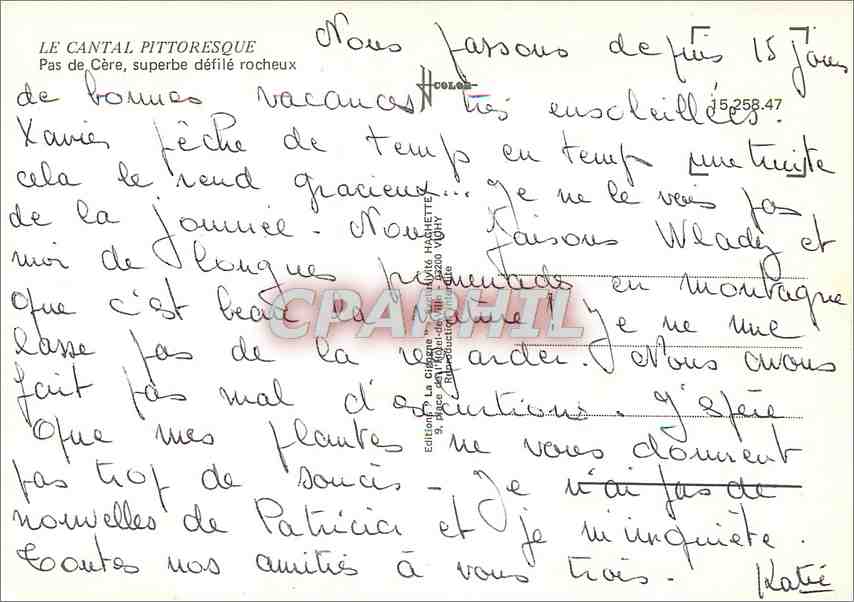 LE CANTAL PITTORESQUE
Pas de Cère, superbe défilé rocheux
COLOR
15.258.47
Nous passons depuis 15 jours
de bonnes vacances très ensoleillées.
Xavier pêche de temp en temp une truite
cela le rend gracieux... Je ne le vois pas
de la journée. Nous faisons Wlady et
moi de longues promenades en montagne
Que c'est beau la nature! Je ne me
lasse pas de la regarder. Nous avons
fait pas mal d'excurtions. J'espère
Que mes plantes ne vous donnent
pas trop de soucis - Je n'ai pas de
nouvelles de Patricia et je m'inquiète.
Toutes nos amitiés à vous trois. Katie
Editions " La Cigogne "
9, place de l'Hôtel-de-Ville - 03200 VICHY
Reproduction interdite
HACHETTE
CPAPHIL